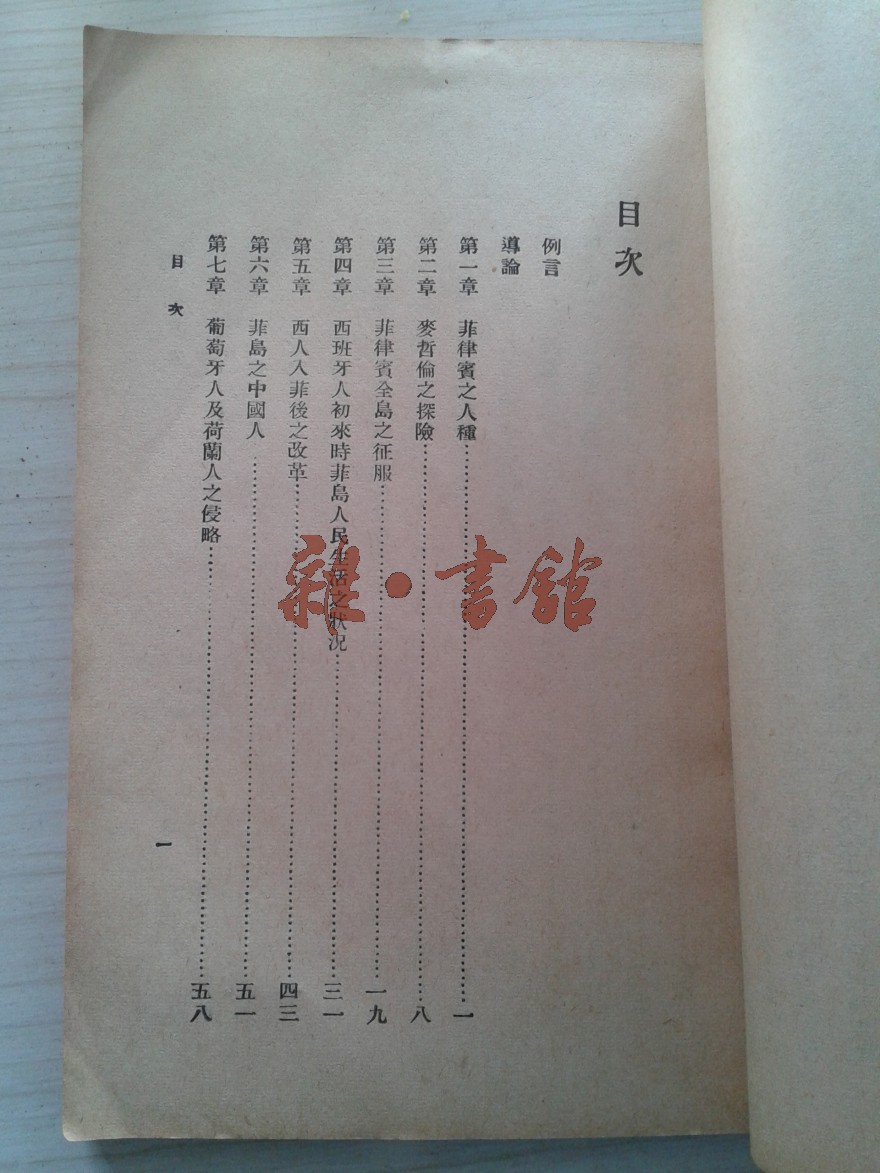 目次
例言
導論
第一章 菲律賓之人種⋯⋯⋯⋯一
第二章 麥哲倫之探險⋯⋯⋯⋯八
第三章 菲律賓全島之征服⋯⋯⋯⋯一九
第四章 西班牙人初來時菲島人民生活之狀況⋯⋯⋯⋯三一
第五章 西人入菲後之改革⋯⋯⋯⋯四三
第六章 菲島之中國人⋯⋯⋯⋯五一
第七章 葡萄牙人及荷蘭人之侵略⋯⋯⋯⋯五八
目次 一
雜·書館